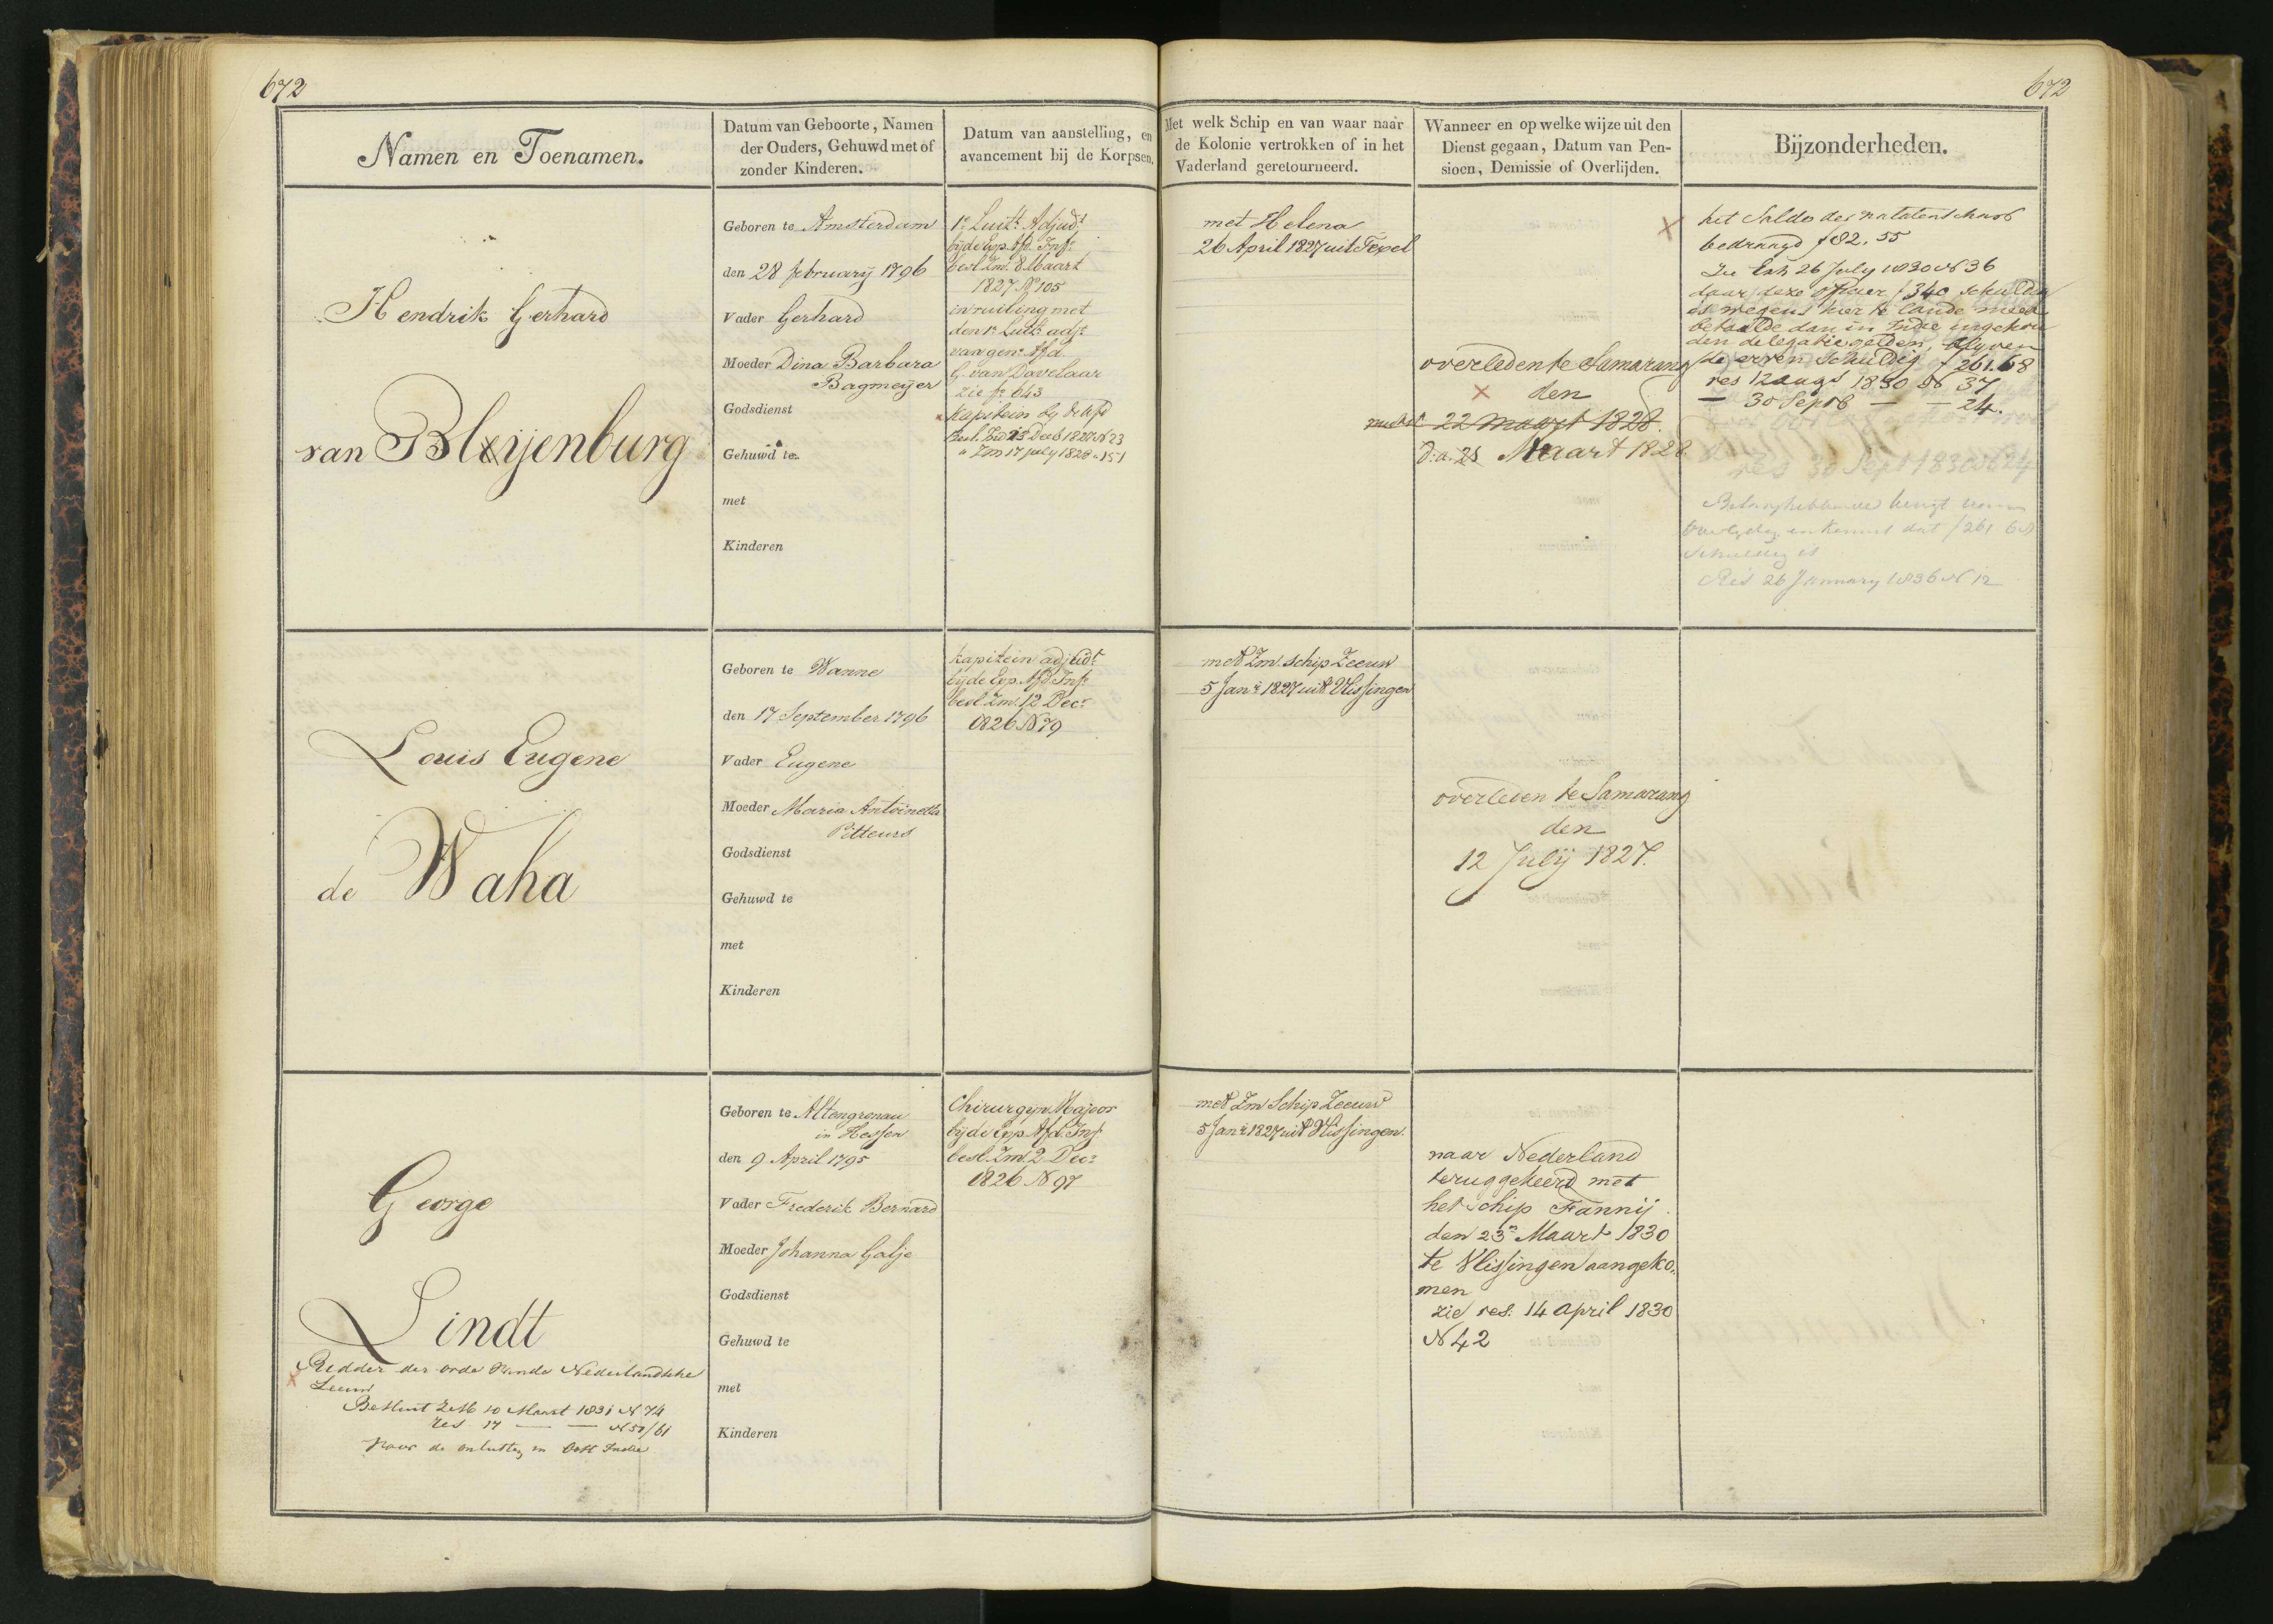 672
672
Namen en Toenamen.
Datum van Geboorte, Namen
der Ouders, Gehuwd met of
zonder Kinderen.
Datum van aanstelling, en
avancement bij de Korpsen.
Met welk Schip en van waar naar
de Kolonie vertrokken of in het
Vaderland geretourneerd.
Wanneer en op welke wijze uit den
Dienst gegaan, Datum van Pen-
sioen, Demissie of Overlijden.
Bijzonderheden.
Hendrik Gerhard
van Bleijenburg
Geboren te Amsterdam
den 28 february 1796
Vader Gerhard
Moeder Dina Barbara
Bagmeijer
Godsdienst
Gehuwd te
met
Kinderen
1e Luitt. Adjudt
bijde Exp. Afd. Inf:
besl. Zm. 8 Maart
1827 No 105
in ruiling met
den 1e Luitt. adjt
van gen: Afd.
G. van Davelaar
zie fo 643
Kapitein by de Afd
besl. 23 Decb 1827 N 23
" Zm 17 july 1828 " 151
met Helena
26 April 1827 uit Texel
overleden te Samarang
den
22 maart 1828.
d: a. 25 Maart 1828
het Saldo der nalatenschap
bedraagd f 82.55
Zie Exh 26 July 1830 N 36
daar deze officier f 340 schuldig
is wegens hier te lande meer
betaalde dan in Indie ingehou
den delegatiegelden, blyven
de erven schuldig f 261.68
res 12 augs 1830 N 37
— 30 Septb — — 24.
res 30 Sept 1830 N 24
dat f 261 68
schuldig is
Res 26 January 1836 N 12
Louis Eugene
de Waha
Geboren te Wanne
den 17 September 1796
Vader Eugene
Moeder Maria Antoinetta
Pitteurs
Godsdienst
Gehuwd te
met
Kinderen
kapitein adjudt
bijde Exp. Afd. Inf:
besl. Zm. 12 Decr
1826 No 79
met Zm. schip Zeeuw
5 Janr 1827 uit Vlissingen
overleden te Samarang
den
12 Julij 1827.
George
Lindt
Ridder der orde van de Nederlandsche
Leeuw
Besluit ZM 10 Maart 1831 N 74
res 17 — — N 50/61
Voor de onlusten in Oost Indie
Geboren te Altengronau
in Hessen
den 9 April 1795
Vader Frederik Bernard
Moeder Johanna Galje
Godsdienst
Gehuwd te
met
Kinderen
Chirurgyn Majoor
bijde Exp. Afd. Inf.
besl. Zm. 2 Decr
1826 No 97
met Zm Schip Zeeuw
5 Janr 1827 uit Vlissingen.
naar Nederland
teruggekeerd met
het schip Fannij.
den 23n Maart 1830
te Vlissingen aangeko-
men
zie res. 14 april 1830
N 42